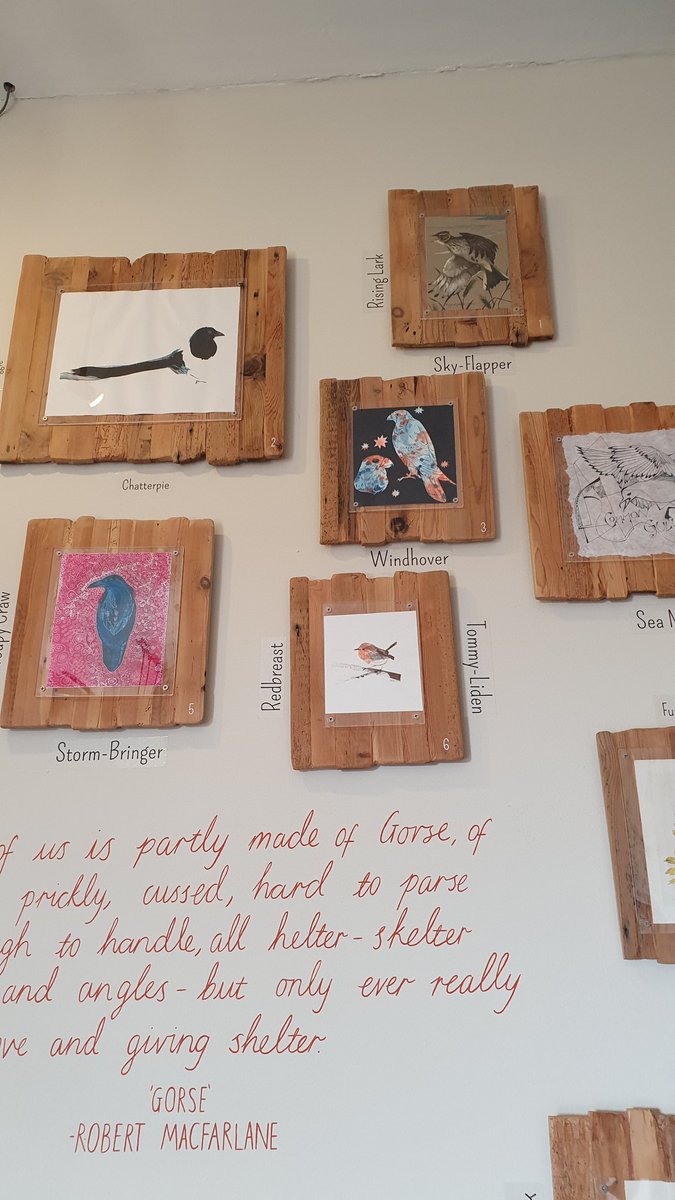 Rising Lark
1
Sky-Flapper
2
Chatterpie
3
Windhover
Sea
Craw
5
Storm-Bringer
Redbreast
Tommy-Liden
6
Fu
of us is partly made of Gorse, of
prickly, cussed, hard to parse
gh to handle, all helter-skelter
and angles - but only ever really
ve and giving shelter.
'GORSE'
-ROBERT MACFARLANE